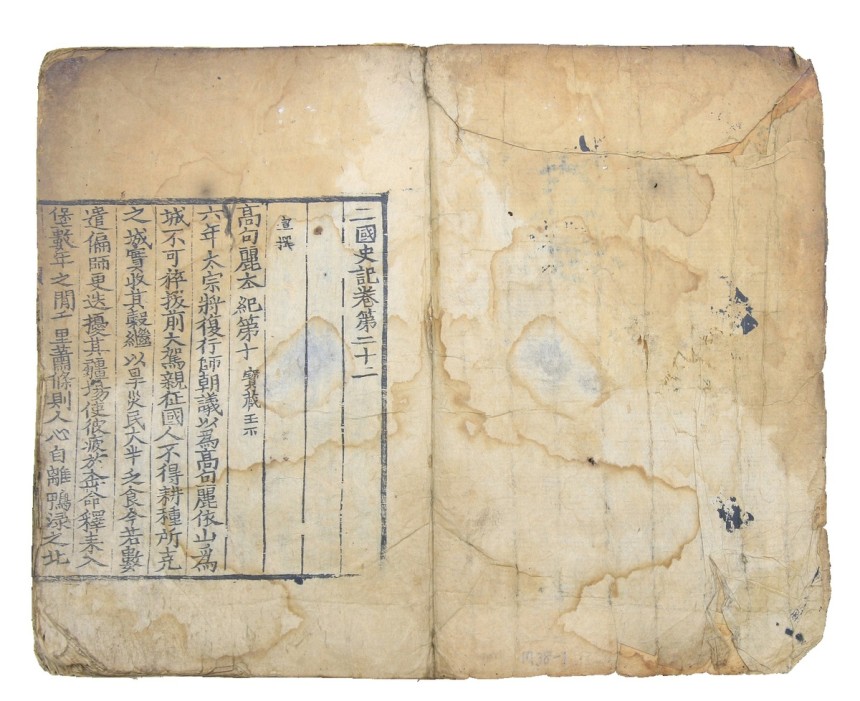 三國史記卷第二十二
宣撰
髙句麗夲紀第十 寶蔵王下
六年太宗將復行師朝議以為髙句麗依山為
城不可猝拔前大駕親征國人不得耕種所克
之城實收其穀繼以旱災民太半乏食今若數
遣偏師更迭擾其疆場使彼疲於奔命釋耒入
堡數年之閒千里蕭條則人心自離鴨渌之北